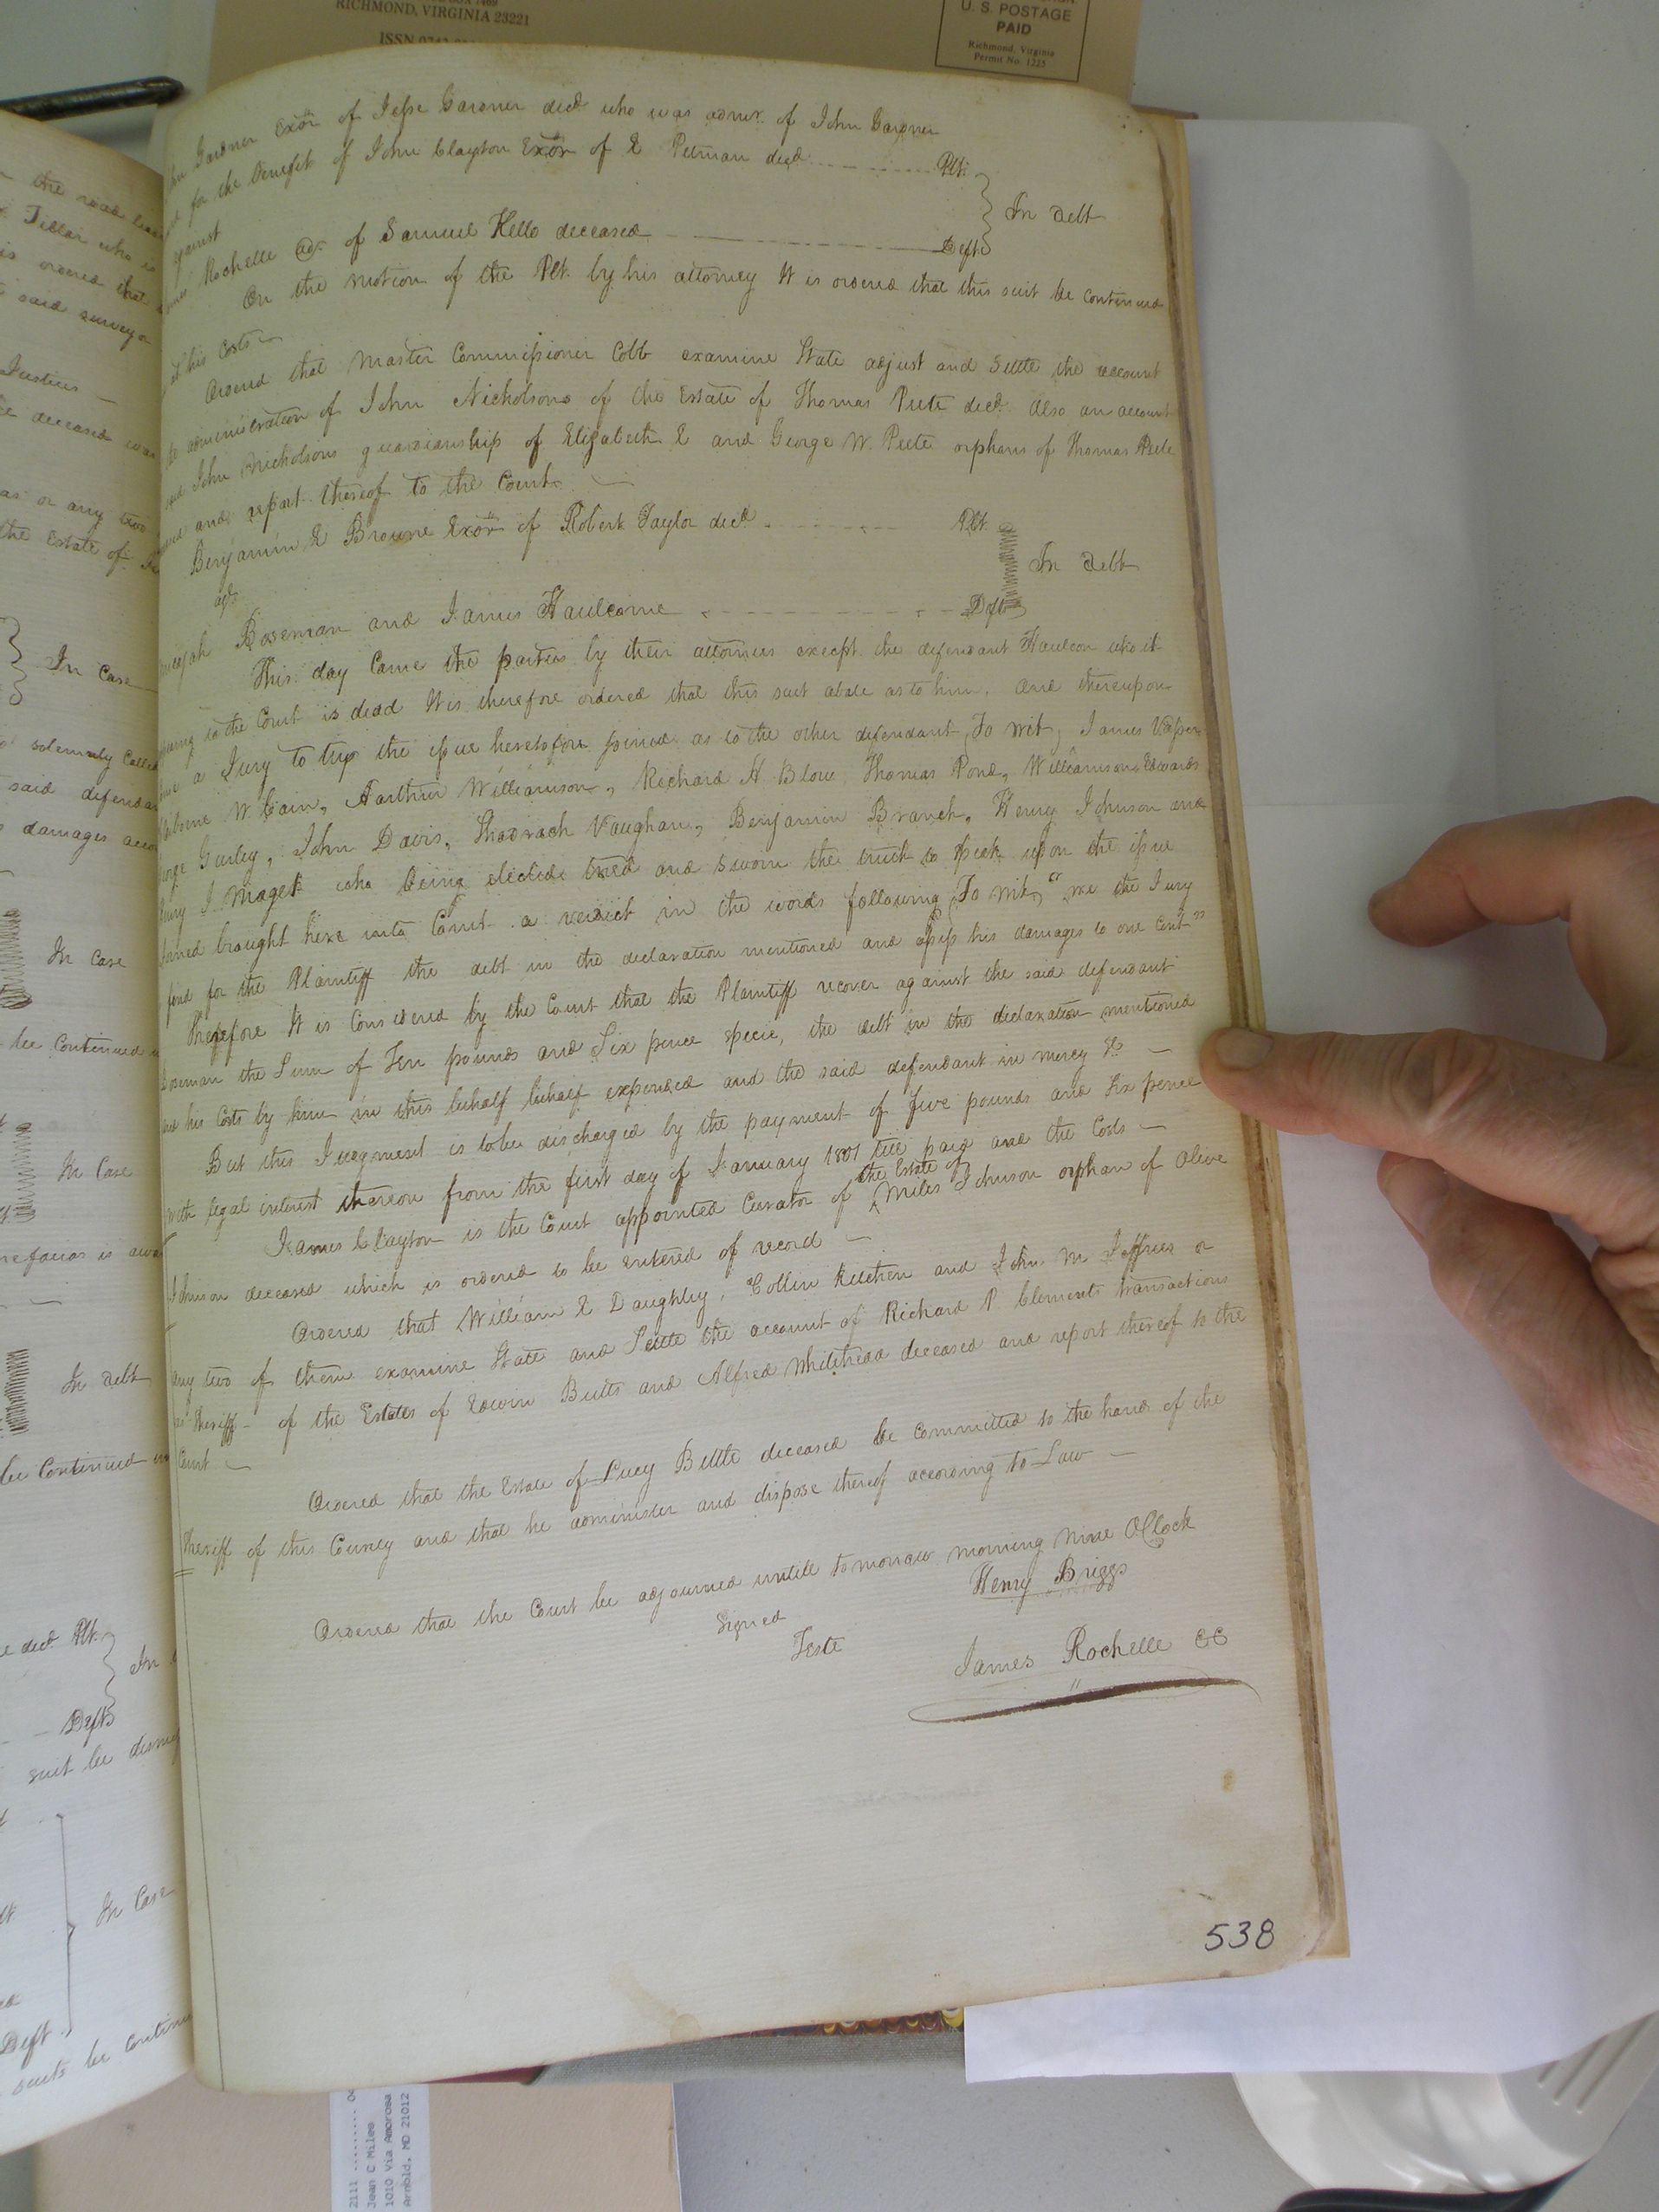 RICHMOND, VIRGINIA 23221
U. S. POSTAGE
PAID
Richmond, Virginia
Permit No. 1225
Gardner Exor of Jesse Gardner decd who was admr of John Gardner
for the benefit of John Clayton Exor of E Pitman decd Plt.
against
In debt
Rochelle adr of Samuel Kello deceased Deft
On the motion of the Plt. by his attorney It is ordered that this suit be continued
at his Costs
Ordered that Master Commissioner Cobb examine State adjust and Settle the account
administration of John Nicholsons of the Estate of Thomas Peete decd. Also an account
said John Nicholsons guardianship of Elizabeth E and George W. Peete orphans of Thomas Pete
and report thereof to the Court
Benjamin E Browne Exor of Robert Taylor decd Plt.
agt.
In debt
Boseman and James Haulcome Deft
This day Came the parties by their attornies except the defendant Haulcom who it
to the Court is dead It is therefore ordered that this suit abate as to him. and thereupon
came a Jury to try the issue heretofore joined as to the other defendant, To wit, James
W Cain, Aarthur Williamson, Richard H. Blow, Thomas Pond, Williamson Edwards
Gurley, John Davis, Shadrach Vaughan, Benjamin Branch, Henry Johnson and
J Maget who being elected tried and sworn the truth to speak upon the issue
joined brought here into Court a verdict in the words following To wit, "we the Jury
find for the Plaintiff the debt in the declaration mentioned and assess his damages to one Cent"
Therefore It is Considered by the Court that the Plaintiff recover against the said defendant
Boseman the Sum of Ten pounds and Six pence specie, the debt in the declaration mentioned
and his Costs by him in this behalf behalf expended and the said defendant in mercy &c
But this Judgment is to be discharged by the payment of five pounds and six pence
with legal interest thereon from the first day of January 1801 till paid and the Costs
James Clayton is the Court appointed Curator of the Estate of Miles Johnson orphan of Olive
Johnson deceased which is ordered to be entered of record
Ordered that William E Daughtry, Collin Kitchen and John M Jeffries or
any two of them examine State and Settle the account of Richard P. Clements transactions
as Sheriff of the Estates of Edwin Butts and Alfred Whitehead deceased and report thereof to the
Court
Ordered that the Estate of Lucy Bittle deceased be committed to the hands of the
Sheriff of this County and that he administer and dispose thereof according to Law
Ordered that the Court be adjourned untill tomorrow morning Nine OClock
Signed Henry Briggs
Teste
James Rochelle CC
538
the road
Tillar who is
is ordered that
said surveyor
Justices
deceased was
as or any two
the Estate of
In Case
solemnly Called
said defendant
damages
In Case
be Continued
In Case
is
In debt
be Continued
decd. Plt.
In
Defts
suit be
In Case
Deft.
suits be Continu
2111
Jean C Miles
1010 Via Amorosa
Arnold, MD 21012